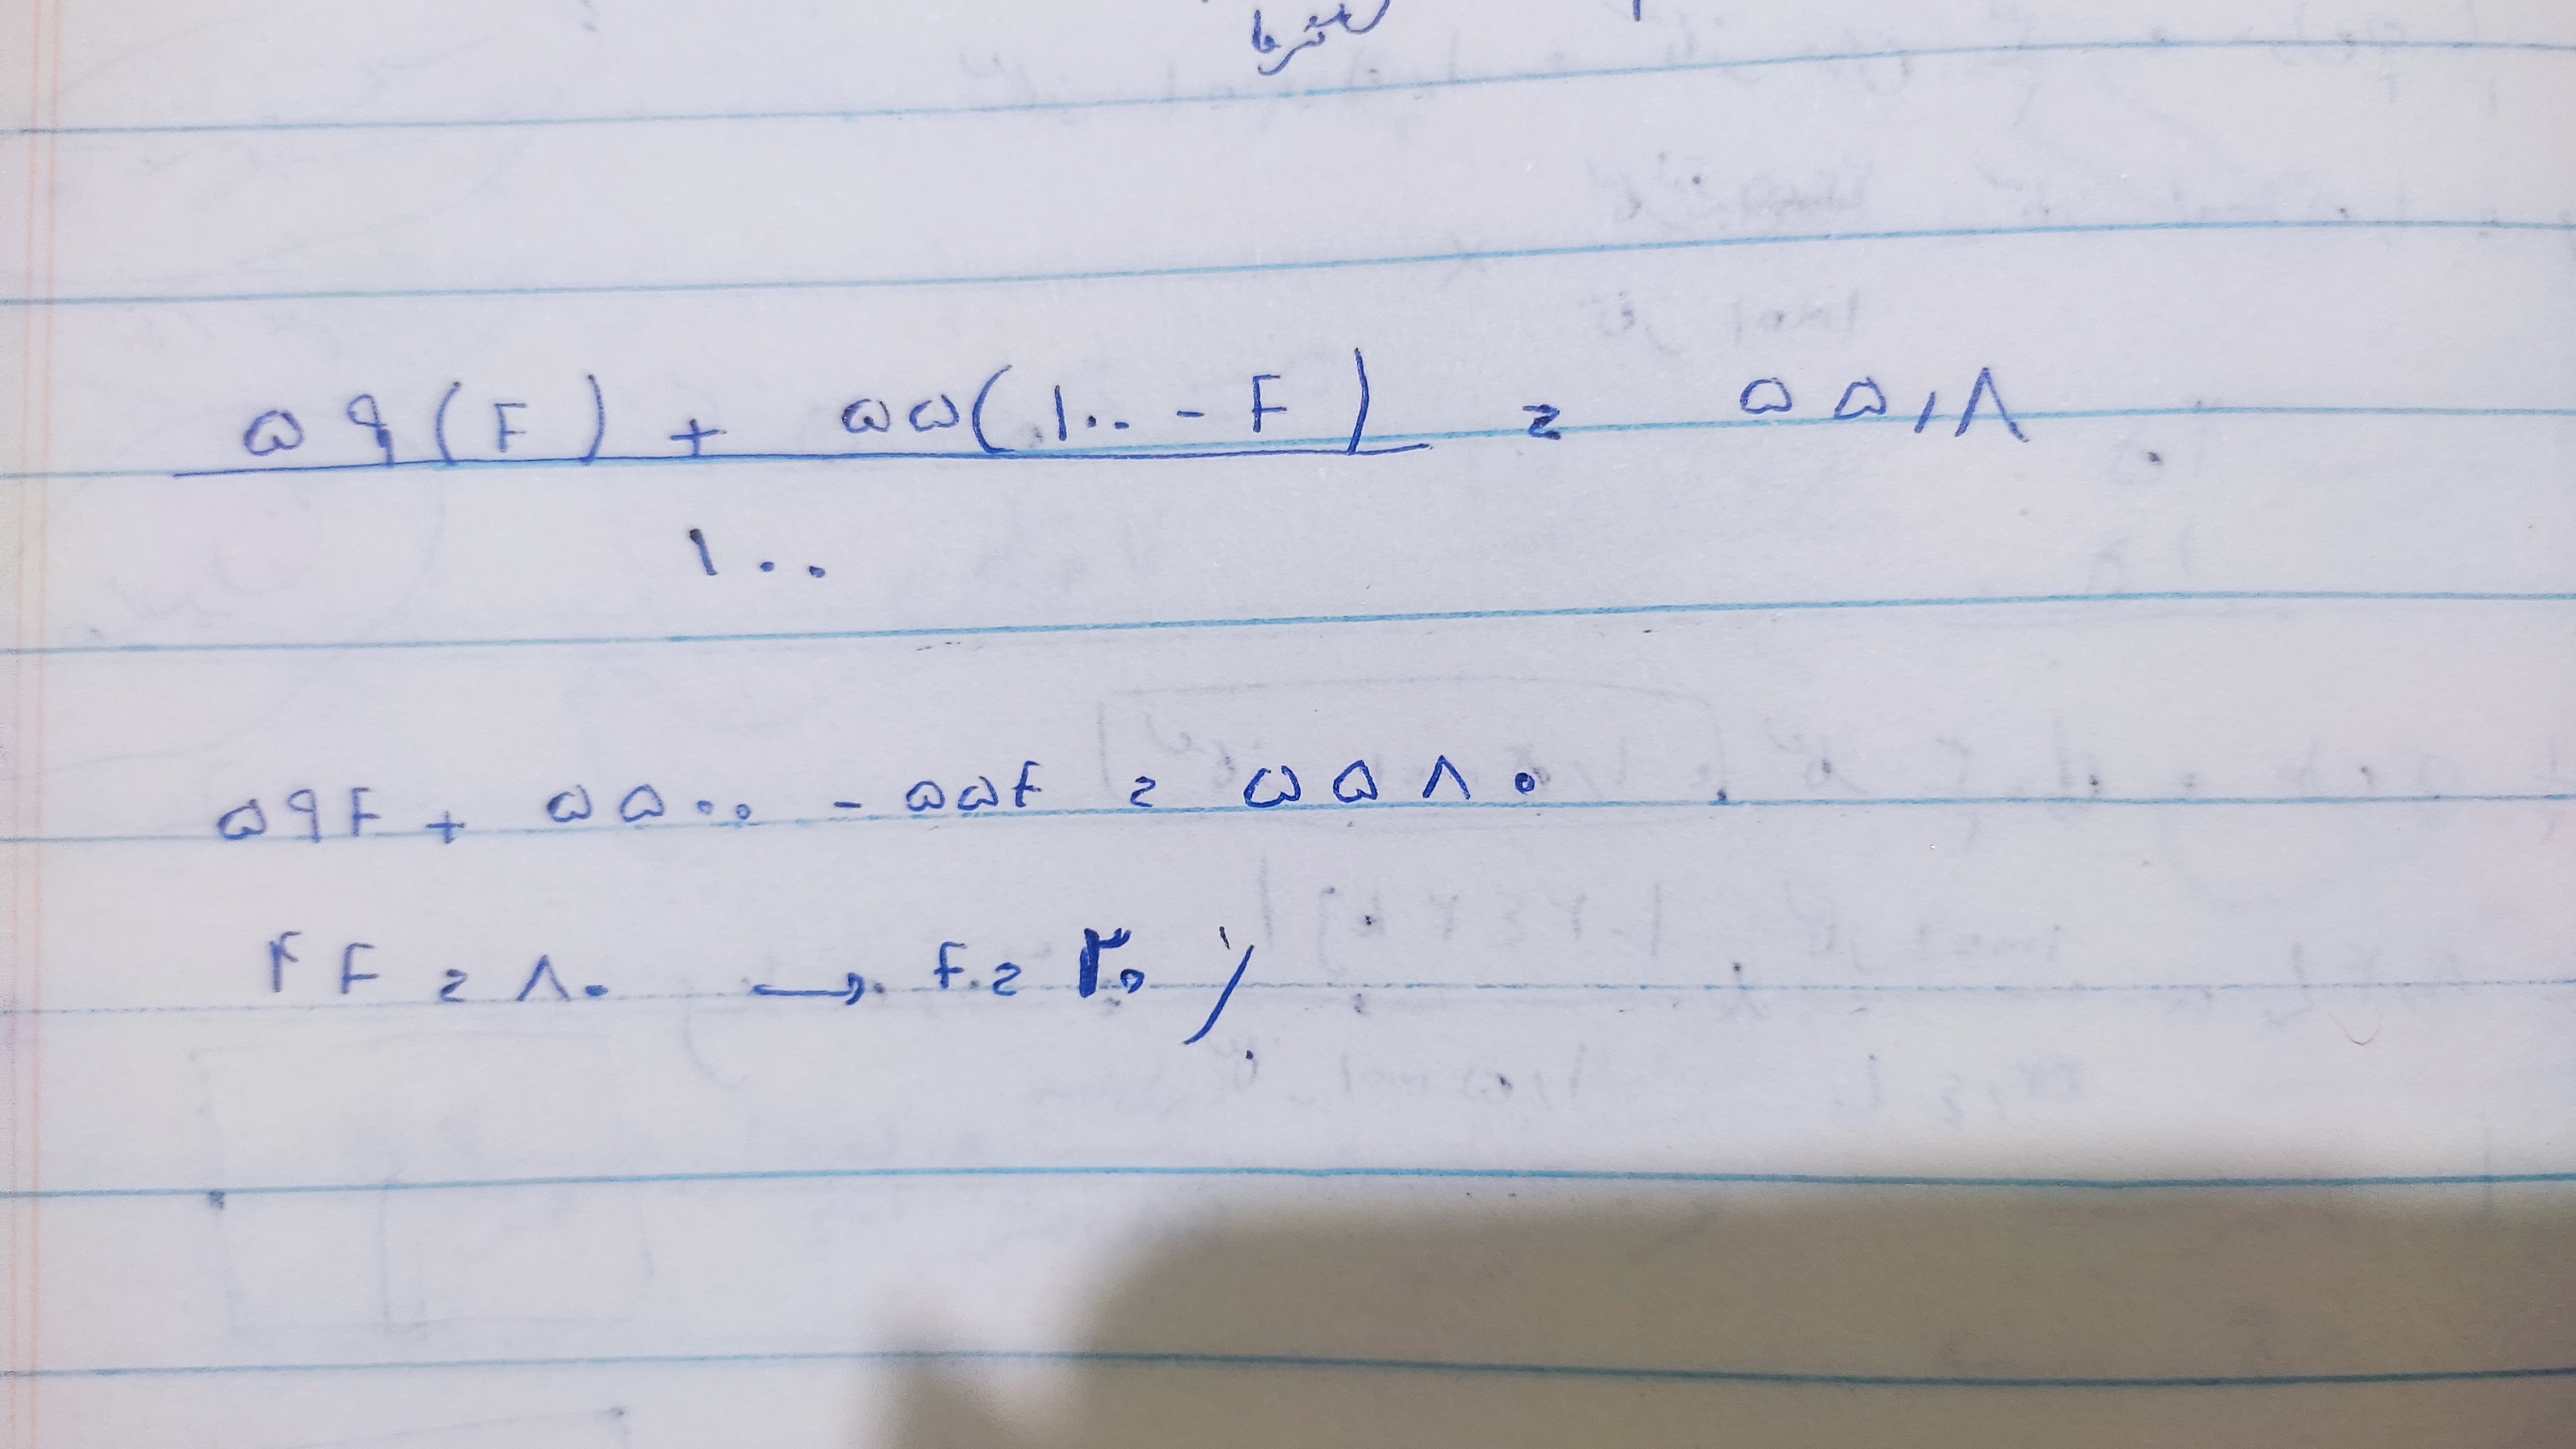 ۵۹(F) + ۵۵(۱۰۰ - F) = ۵۵,۸
۱۰۰
۵۹F + ۵۵۰۰ - ۵۵F = ۵۵۸۰
۴F = ۸۰ → F = ۲۰ ٪